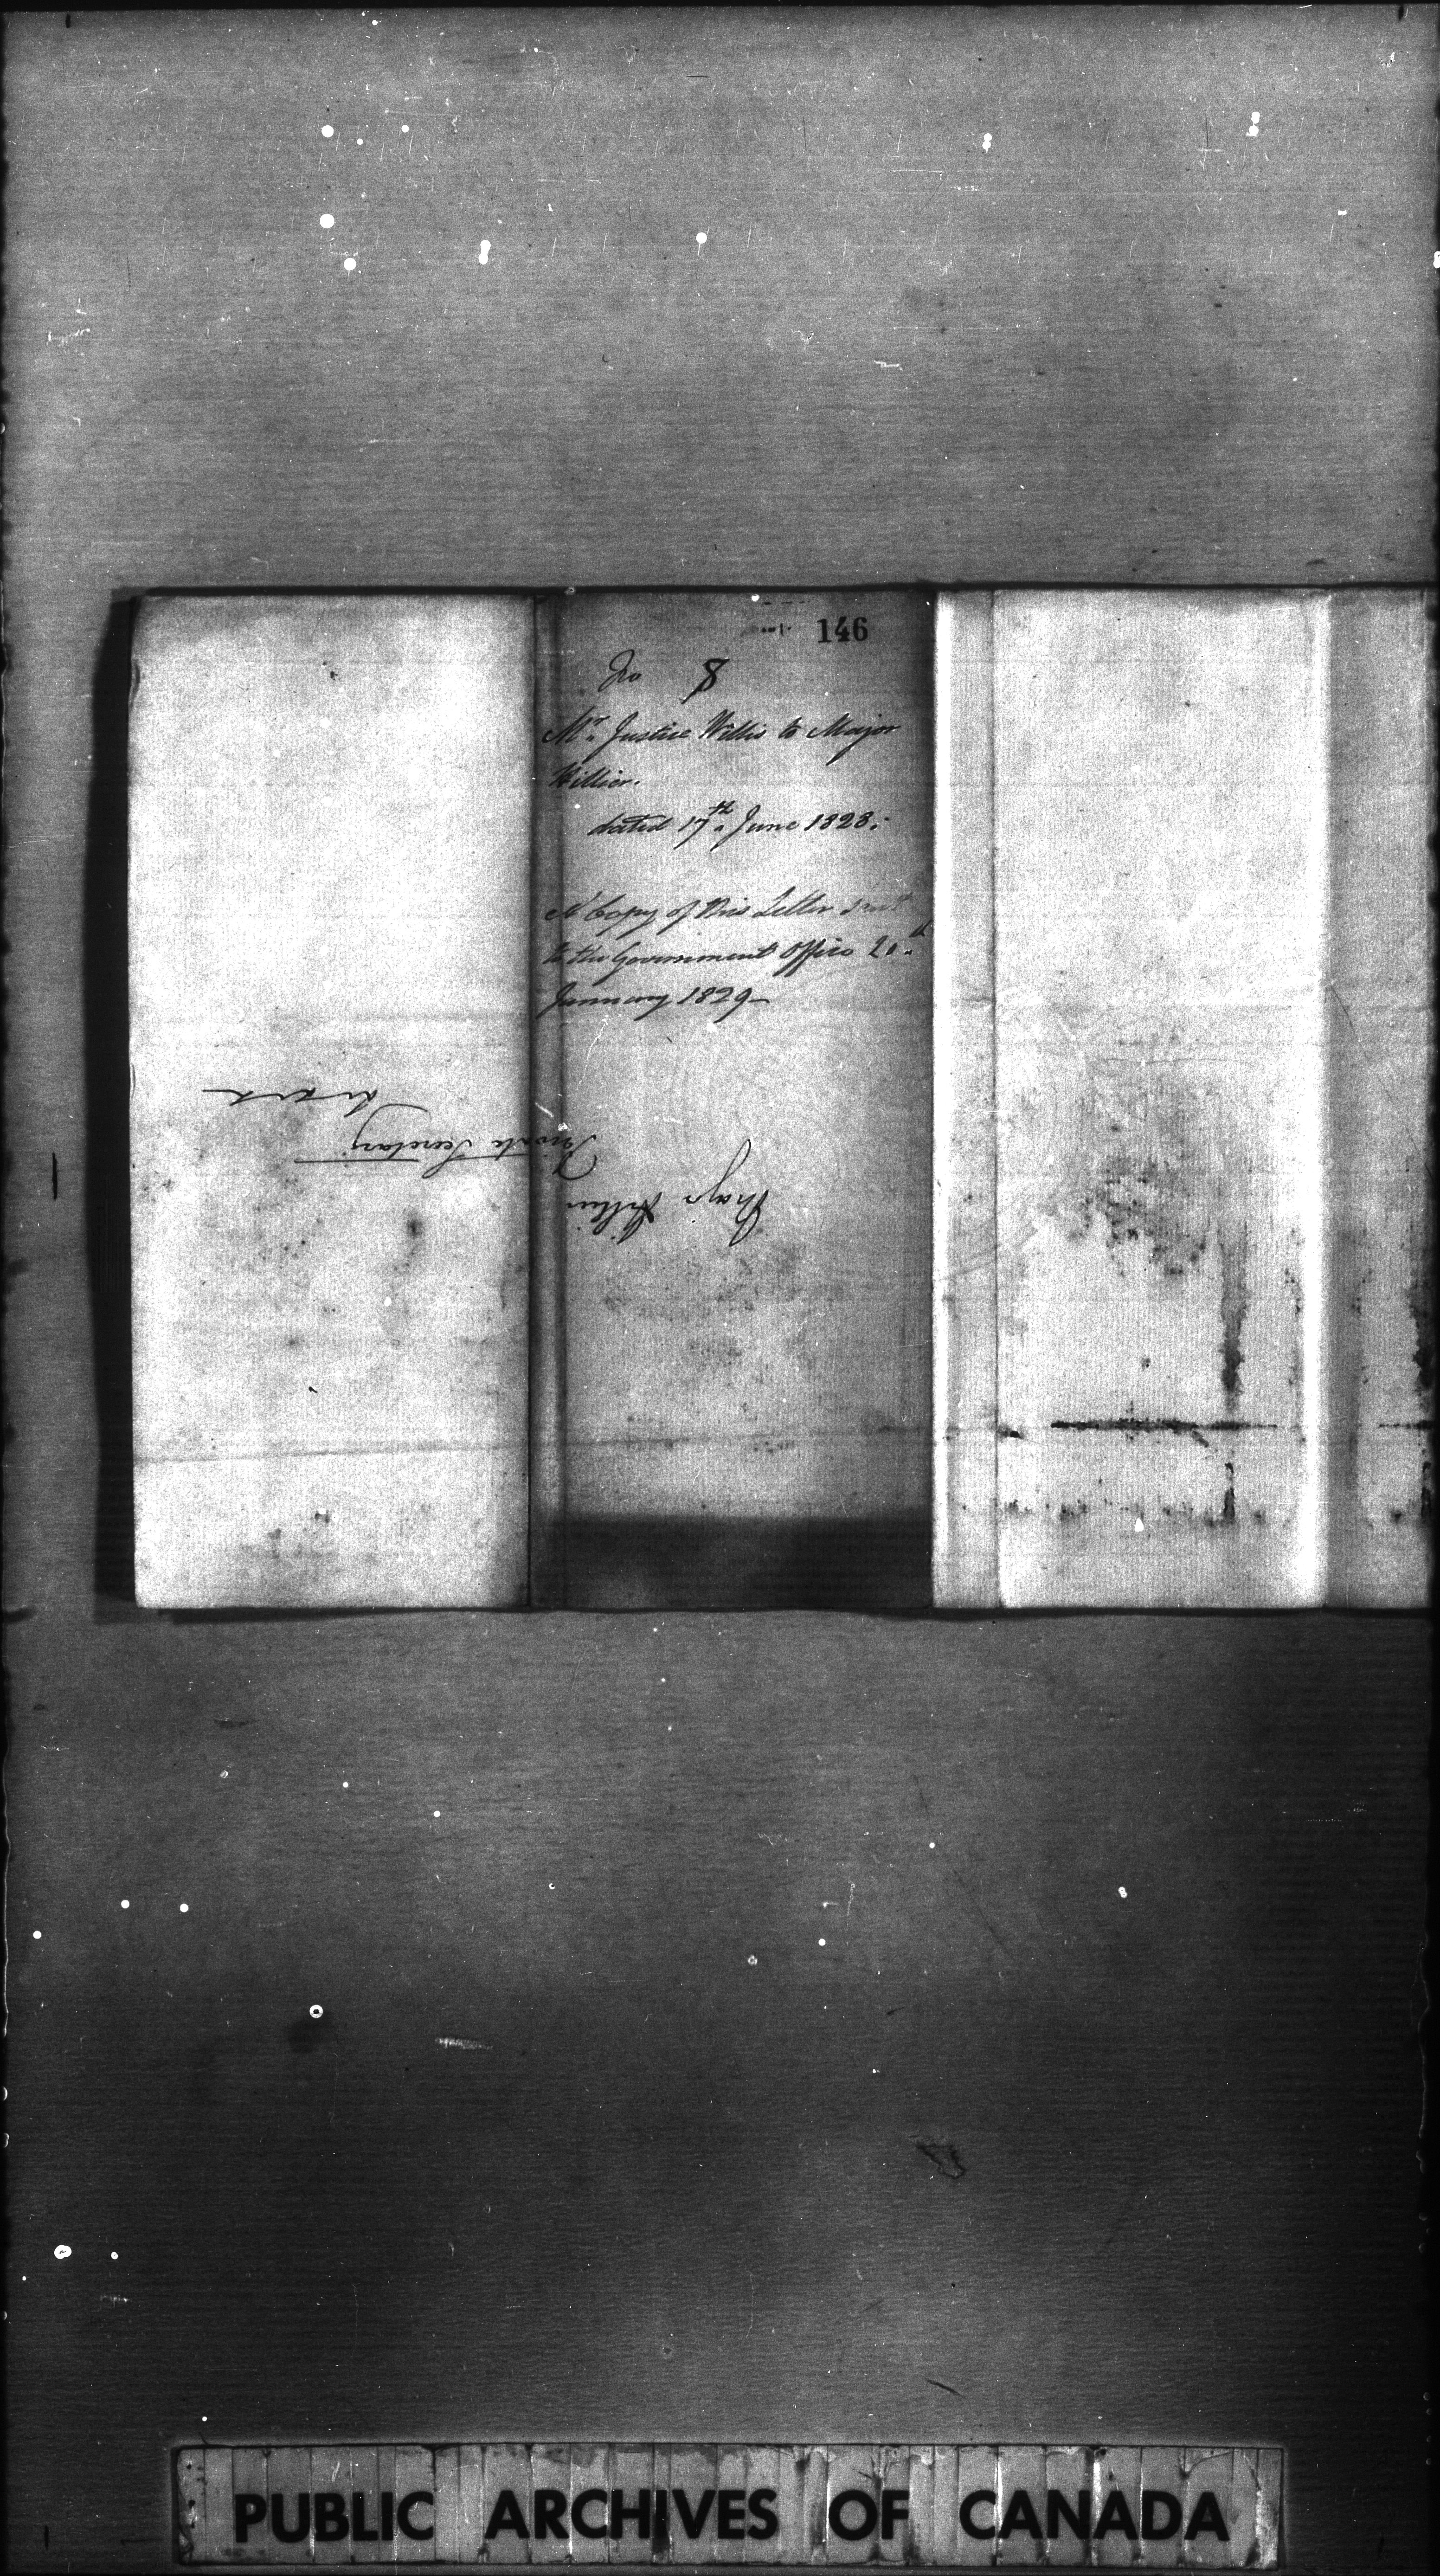 146
No 8
Mr. Justice Willis to Major
Hillier.
dated 17th June 1828.
A Copy of this Letter sent
to the Government Office 20th
January 1829—
Major Hillier
Private Secretary
PUBLIC ARCHIVES OF CANADA